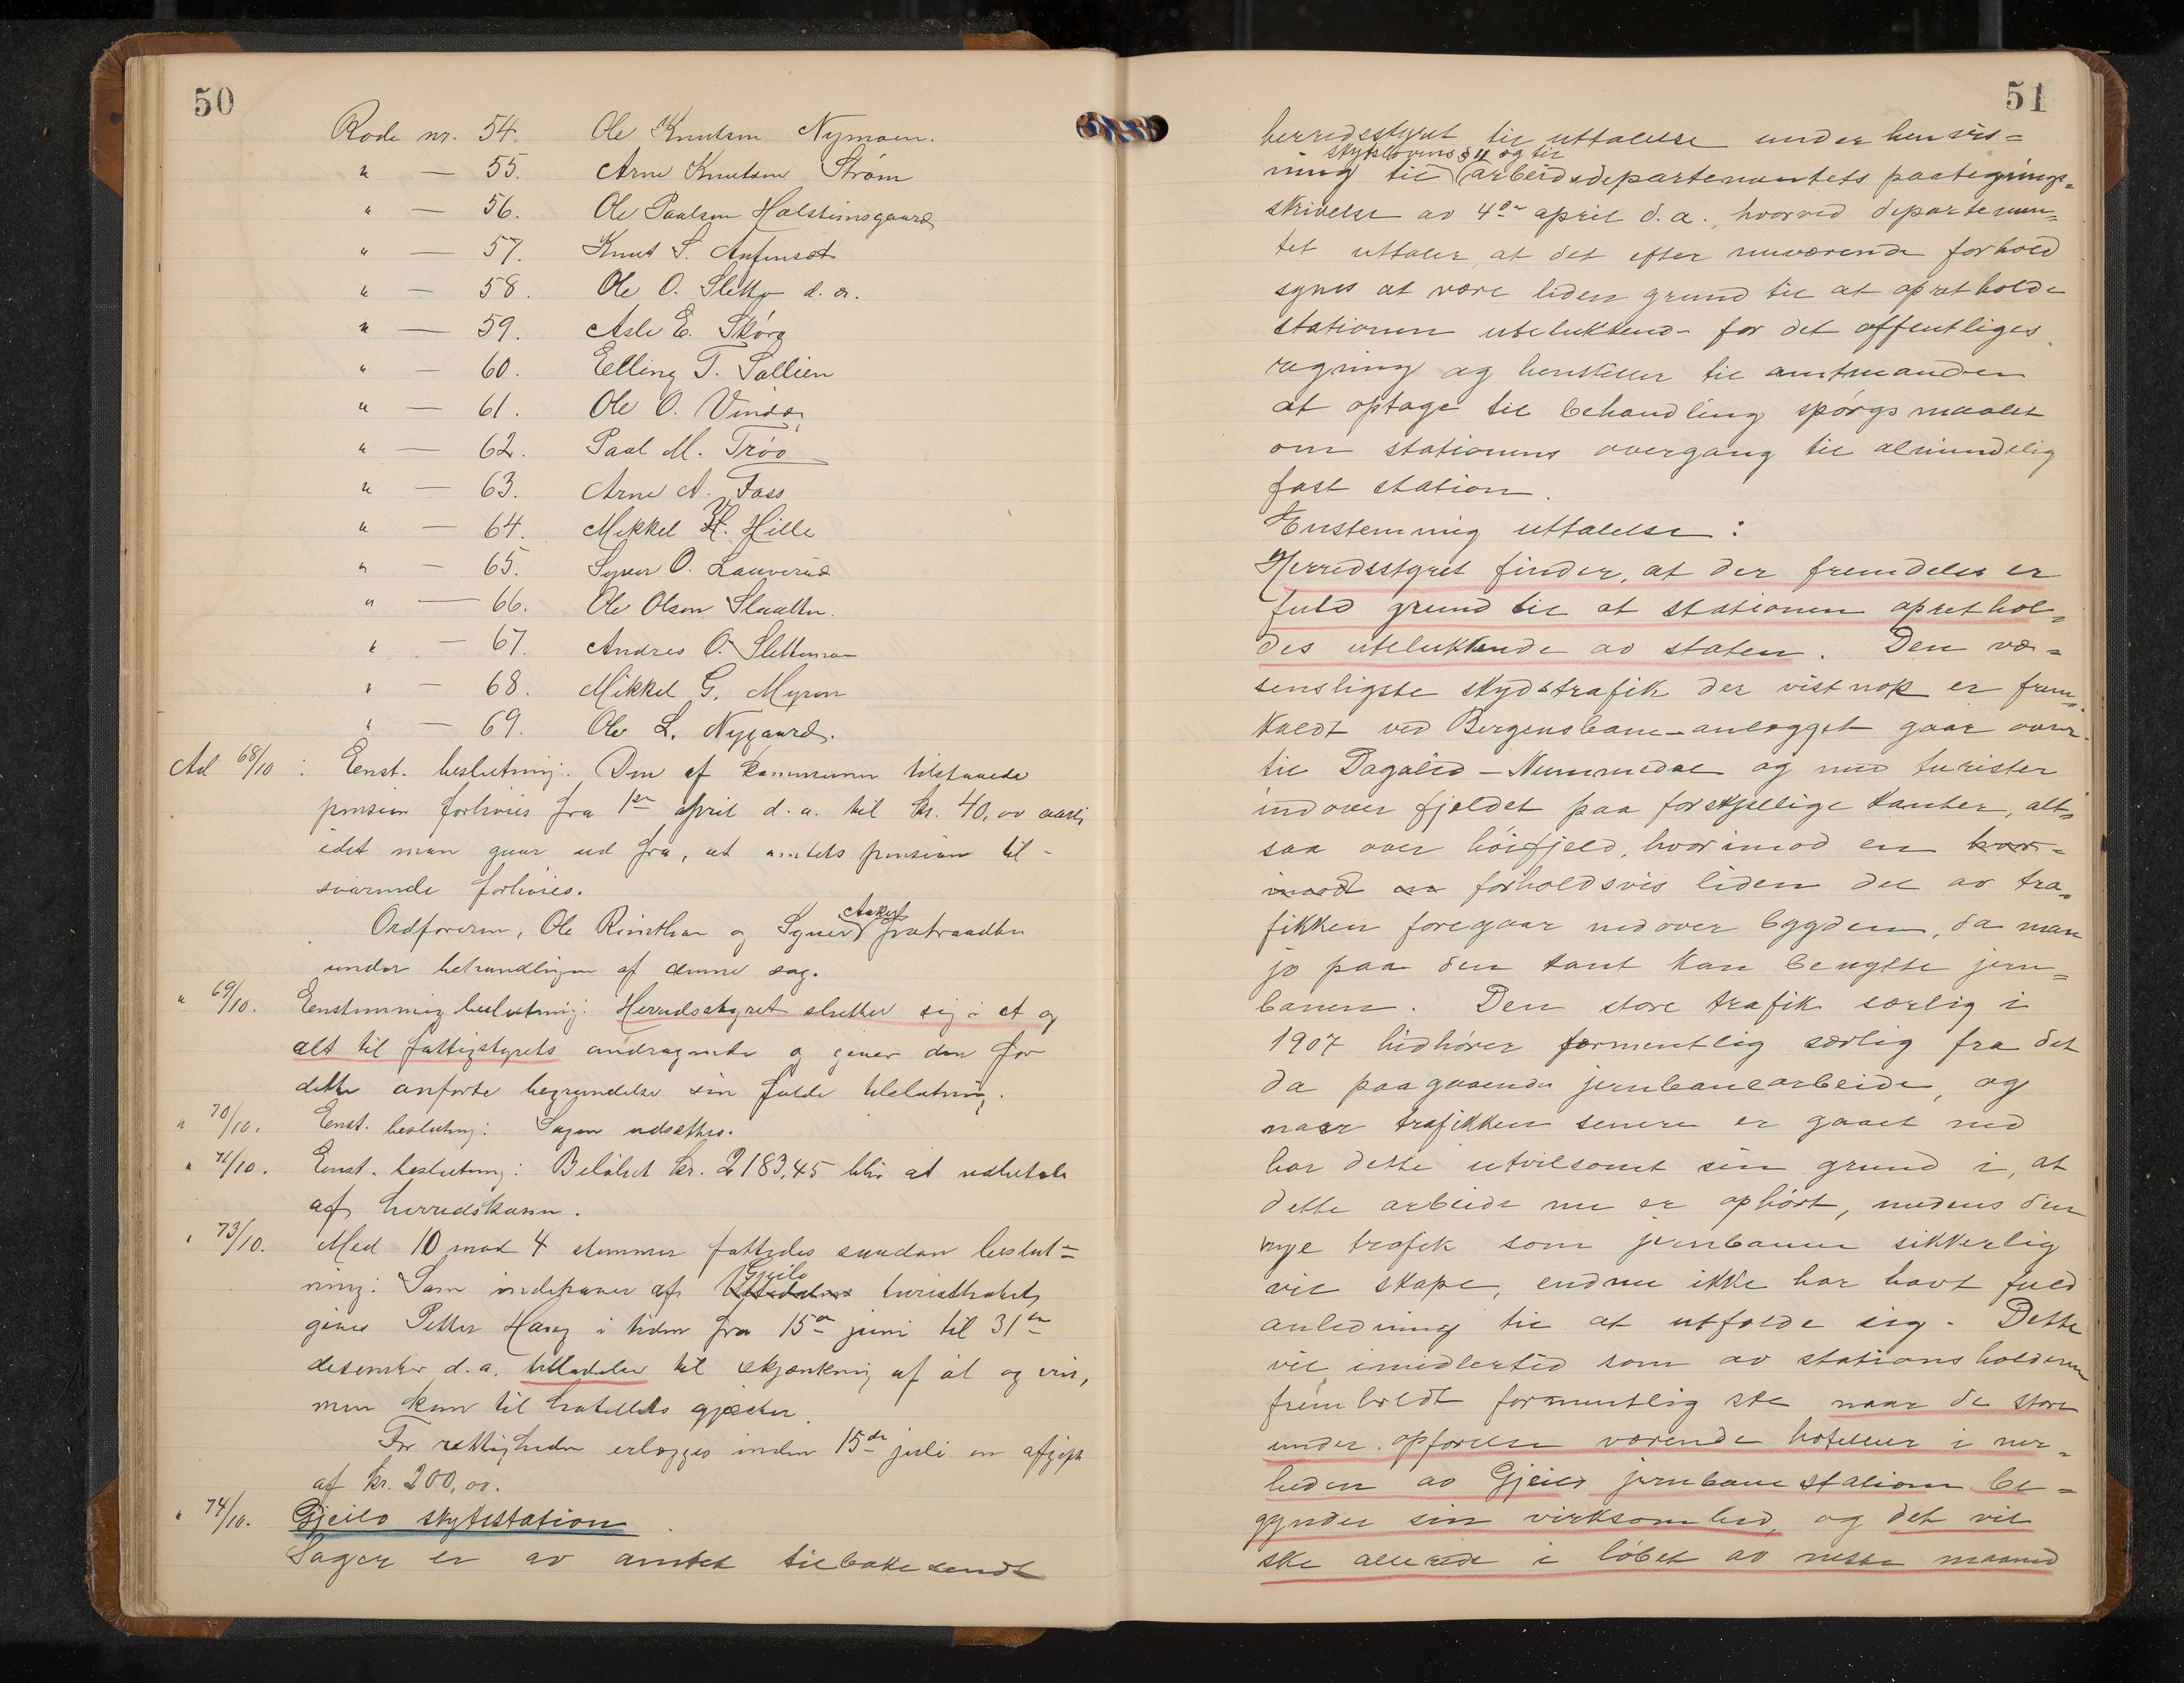 50
Rode nr. 54. Ole Knutson Nymoen.
" — 55. Arne Knutson Strøm
" — 56. Ole Paulson Halsteinsgaard
" — 57. Knut S.
" — 58. Ole O. Sletto d. æ.
" — 59. Asle E. Skóro
" — 60. Elling T. Sællien
" — 61. Ole O. Vindæ
" — 62. Paal M. Tróo
" — 63. Arne A. Foss
" — 64. Mikkel H. Hille
" — 65. Syver O. Lauverud
" — 66. Ole Olson Slaatto.
" — 67. Andres O. Slettemoen
" — 68. Mikkel G. Myren
" — 69. Ole L. Nygaard.
Ad 68/10: Enst. beslutning: Den af kommunen tilstaaede
pension forhöies fra 1ste april d. a. til kr. 40,00 aarli
idet man gaar ud fra, at amtets pension til-
svarende forhöies.
Ordføreren, Ole Rimthun og Syver Aaker fratraadte
under behandlingen af denne sag.
" 69/10. Enstemmig beslutning: Herredsstyret slutter sig i et og
alt til fattigstyrets andragende og giver den for
dette anførte begrundelse sin fulde tilslutning.
" 70/10. Enst. beslutning: Sagen udsættes.
" 71/10. Enst. beslutning: Beløbet kr. 2183,45 blir at udbetale
af herredskassen.
" 73/10. Med 10 mod 4 stemmer fattedes saadan beslut=
ning: Som indehaver af Gjeilo turisthotel,
gives Petter Haug i tiden fra 15de juni til 31te
desember d.a. tilladelse til skjænkning af øl og vin,
men kun til hotellets gjæster.
For rettigheden erlægges inden 15de juli en afgift
af kr. 200,00.
" 74/10. Gjeilo skytsstation.
Sagen er av amtet tilbakesendt
51
herredsstyret til uttalelse under henvis=
skytslovens § 11 og til
ning til arbeidsdepartementets paategnings=
skrivelse av 4de april d. a., hvorved departemen=
tet uttaler, at det efter nuværende forhold
synes at være liden grund til at opretholde
stationen utelukkende for det offentliges
regning og henstiller til amtmanden
at optage til behandling spörgsmaalet
om stationens overgang til almindelig
fast station.
Enstemmig uttalelse:
Herredsstyret finder, at der fremdeles er
fuld grund til at stationen oprethol=
des utelukkende av staten. Den væ=
sensligste skydstrafik der vistnok er frem=
kaldt ved Bergensbane-anlægget gaar over
til Dagalid - Nummedal og med turister
indover fjeldet paa forskjellige kanter, alt=
saa over höifjeld, hvorimod en hvor=
imod en forholdsvis liden del av tra=
fikken foregaar nedover bygden, da man
jo paa den kant kan benytte jern=
banen. Den store trafik særlig i
1907 hidhörer formentlig særlig fra det
da paagaaende jernbanearbeide, og
naar trafikken senere er gaaet ned
har dette utvilsomt sin grund i, at
dette arbeide nu er ophört, medens den
nye trafik som jernbanen sikkerlig
vil skape, endnu ikke har havt fuld
anledning til at utfolde sig. Dette
vil imidlertid som av stationsholderen
fremholdt formentlig ske naar de store
under opförelse værende hoteller i nær=
heden av Gjeilo jernbanestation be=
gynder sin virksomhed, og det vil
ske allerede i löbet av næste maaned